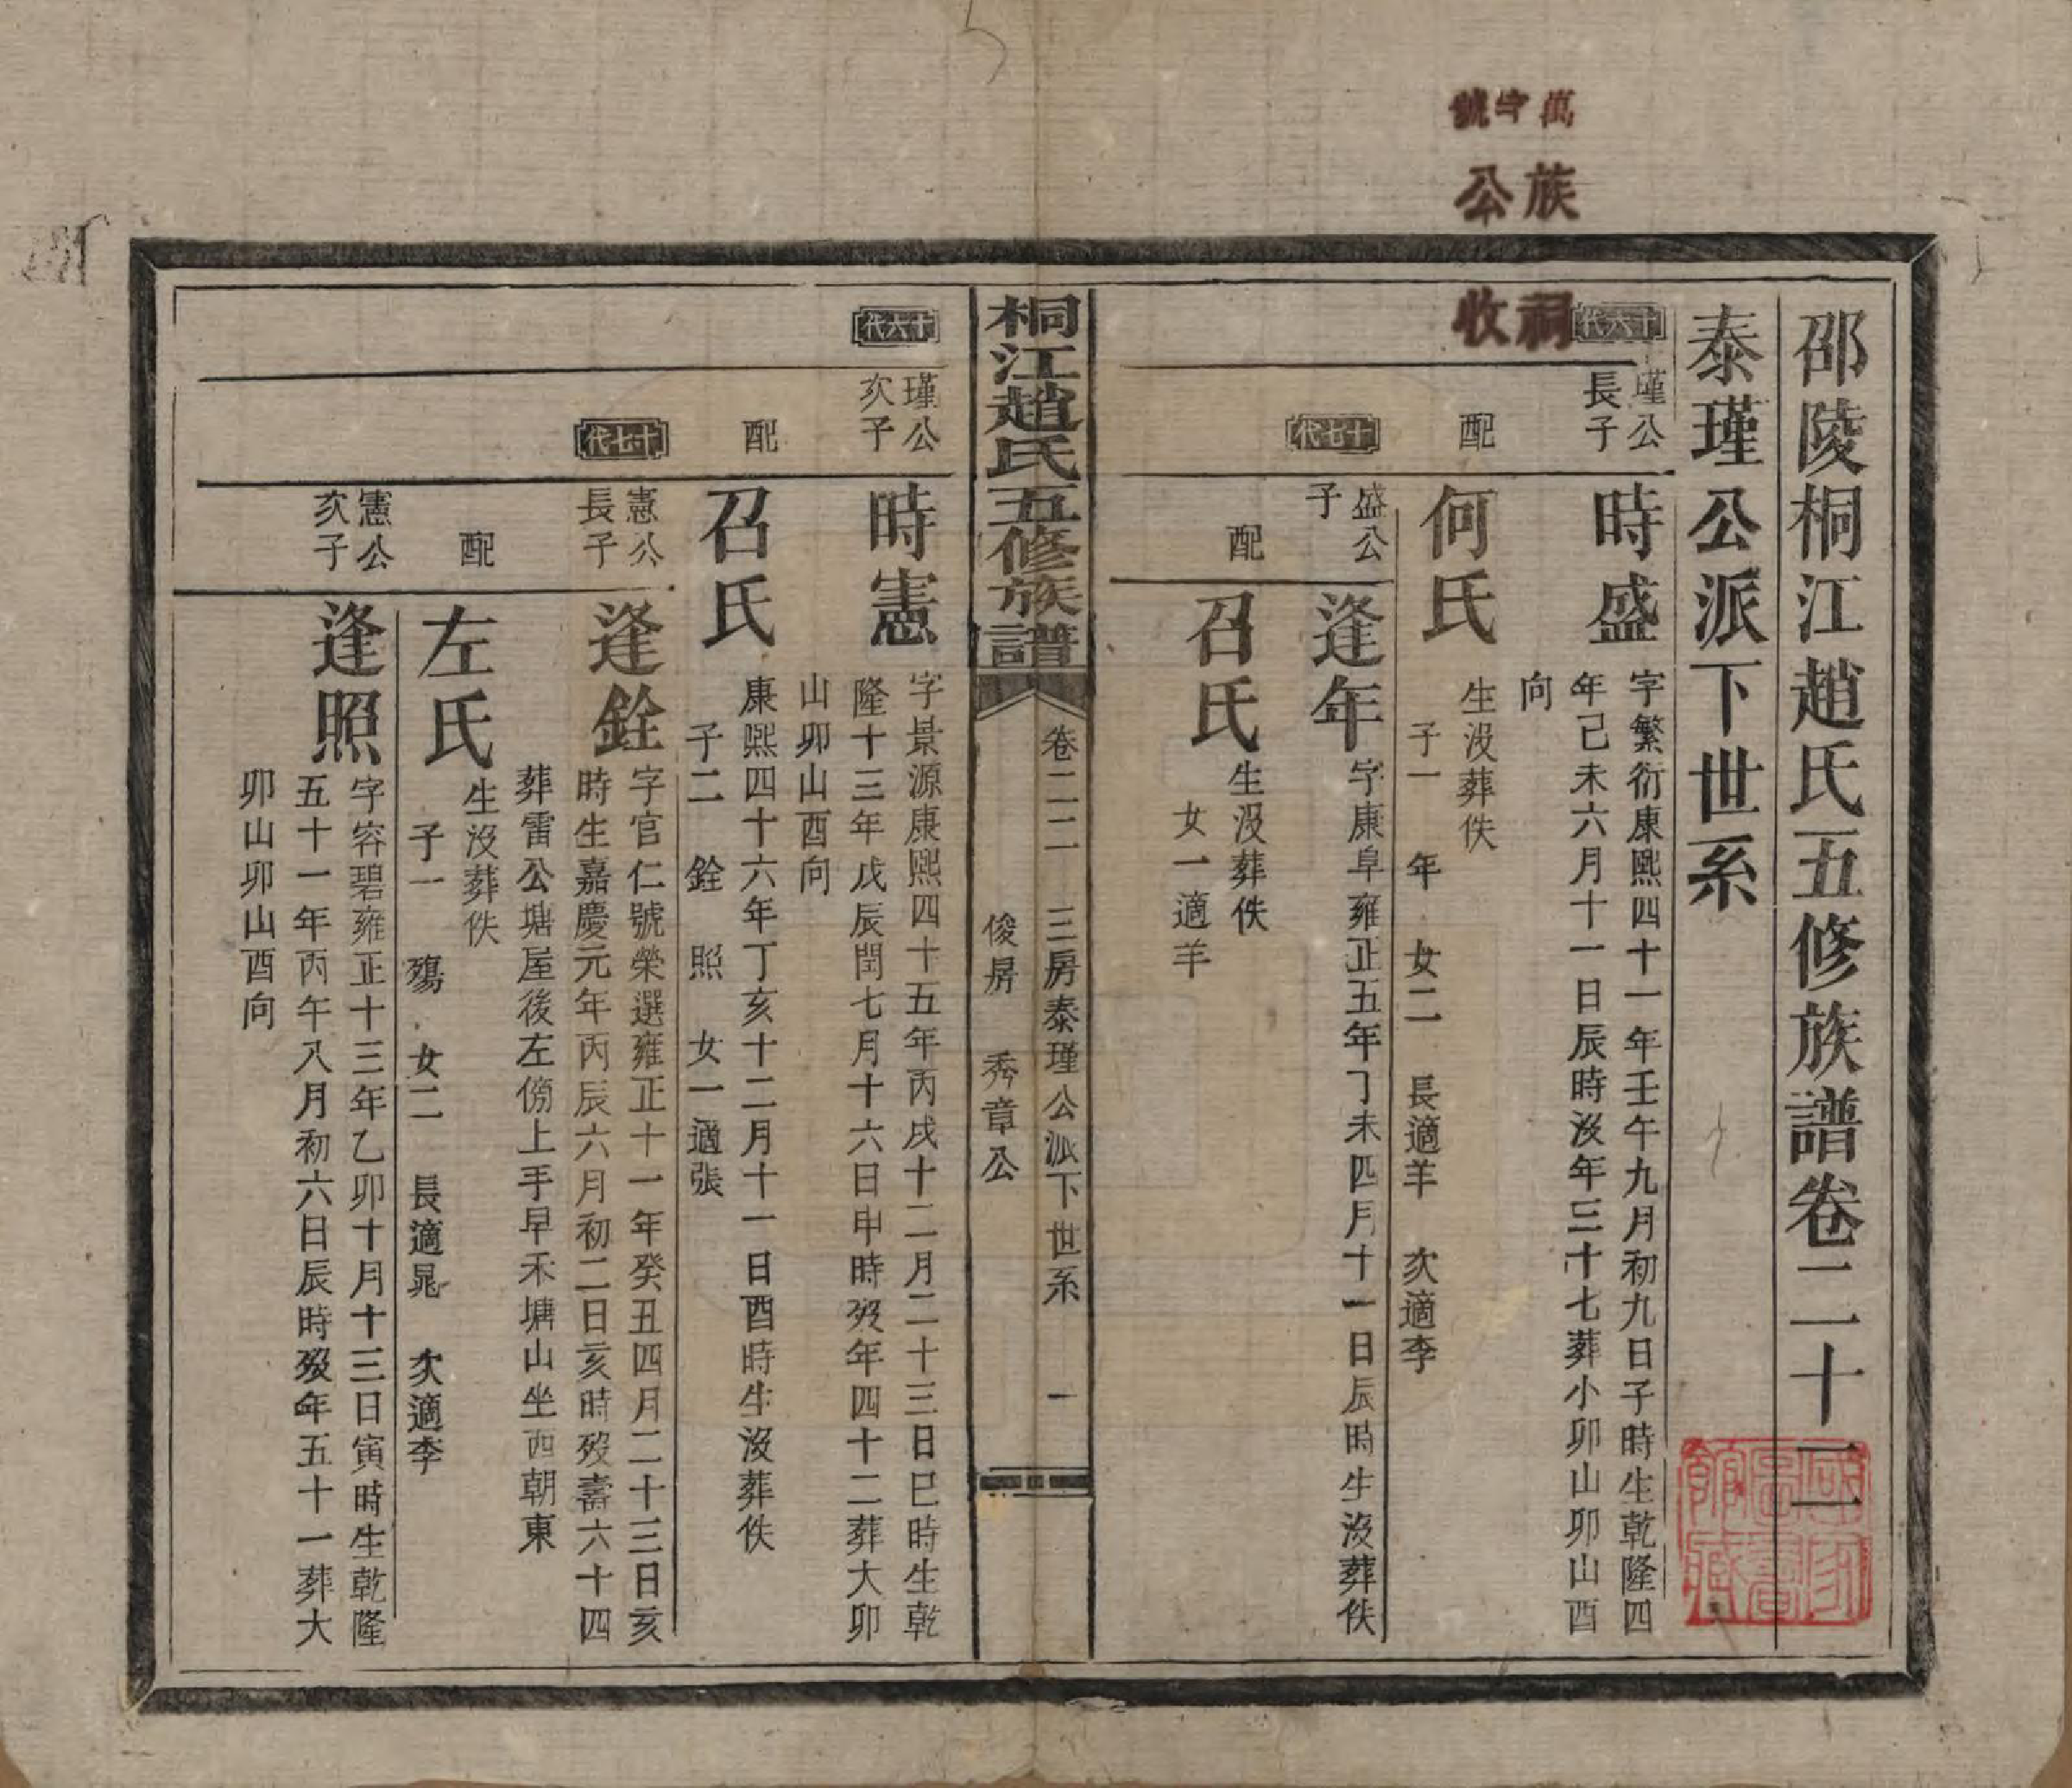 萬字號
族公
祠收
邵陵桐江趙氏五修族譜卷二十二
泰瑾公派下世系
十六代
瑾公長子
時盛
字繁衍康熙四十一年壬午九月初九日子時生乾隆四
年己未六月十一日辰時沒年三十七葬小卯山卯山酉
向
配
何氏
生沒葬佚
子一 年 女二 長適羊 次適李
十七代
盛公子
逢年
字康阜雍正五年丁未四月十一日辰時生沒葬佚
配
召氏
生沒葬佚
女一適羊
桐江趙氏五修族譜
卷二二 三房泰瑾公派下世系 一
俊房 秀章公
十六代
瑾公次子
時憲
字景源康熙四十五年丙戌十二月二十三日巳時生乾
隆十三年戊辰閏七月十六日申時歿年四十二葬大卯
山卯山酉向
配
召氏
康熙四十六年丁亥十二月十一日酉時生沒葬佚
子二 銓 照 女一適張
十七代
憲公長子
逢銓
字官仁號榮選雍正十一年癸丑四月二十三日亥
時生嘉慶元年丙辰六月初二日亥時歿壽六十四
葬雷公塘屋後左傍上手早禾塘山坐西朝東
配
左氏
生沒葬佚
子一 殤 女二 長適晁 次適李
憲公次子
逢照
字容碧雍正十三年乙卯十月十三日寅時生乾隆
五十一年丙午八月初六日辰時歿年五十一葬大
卯山卯山酉向